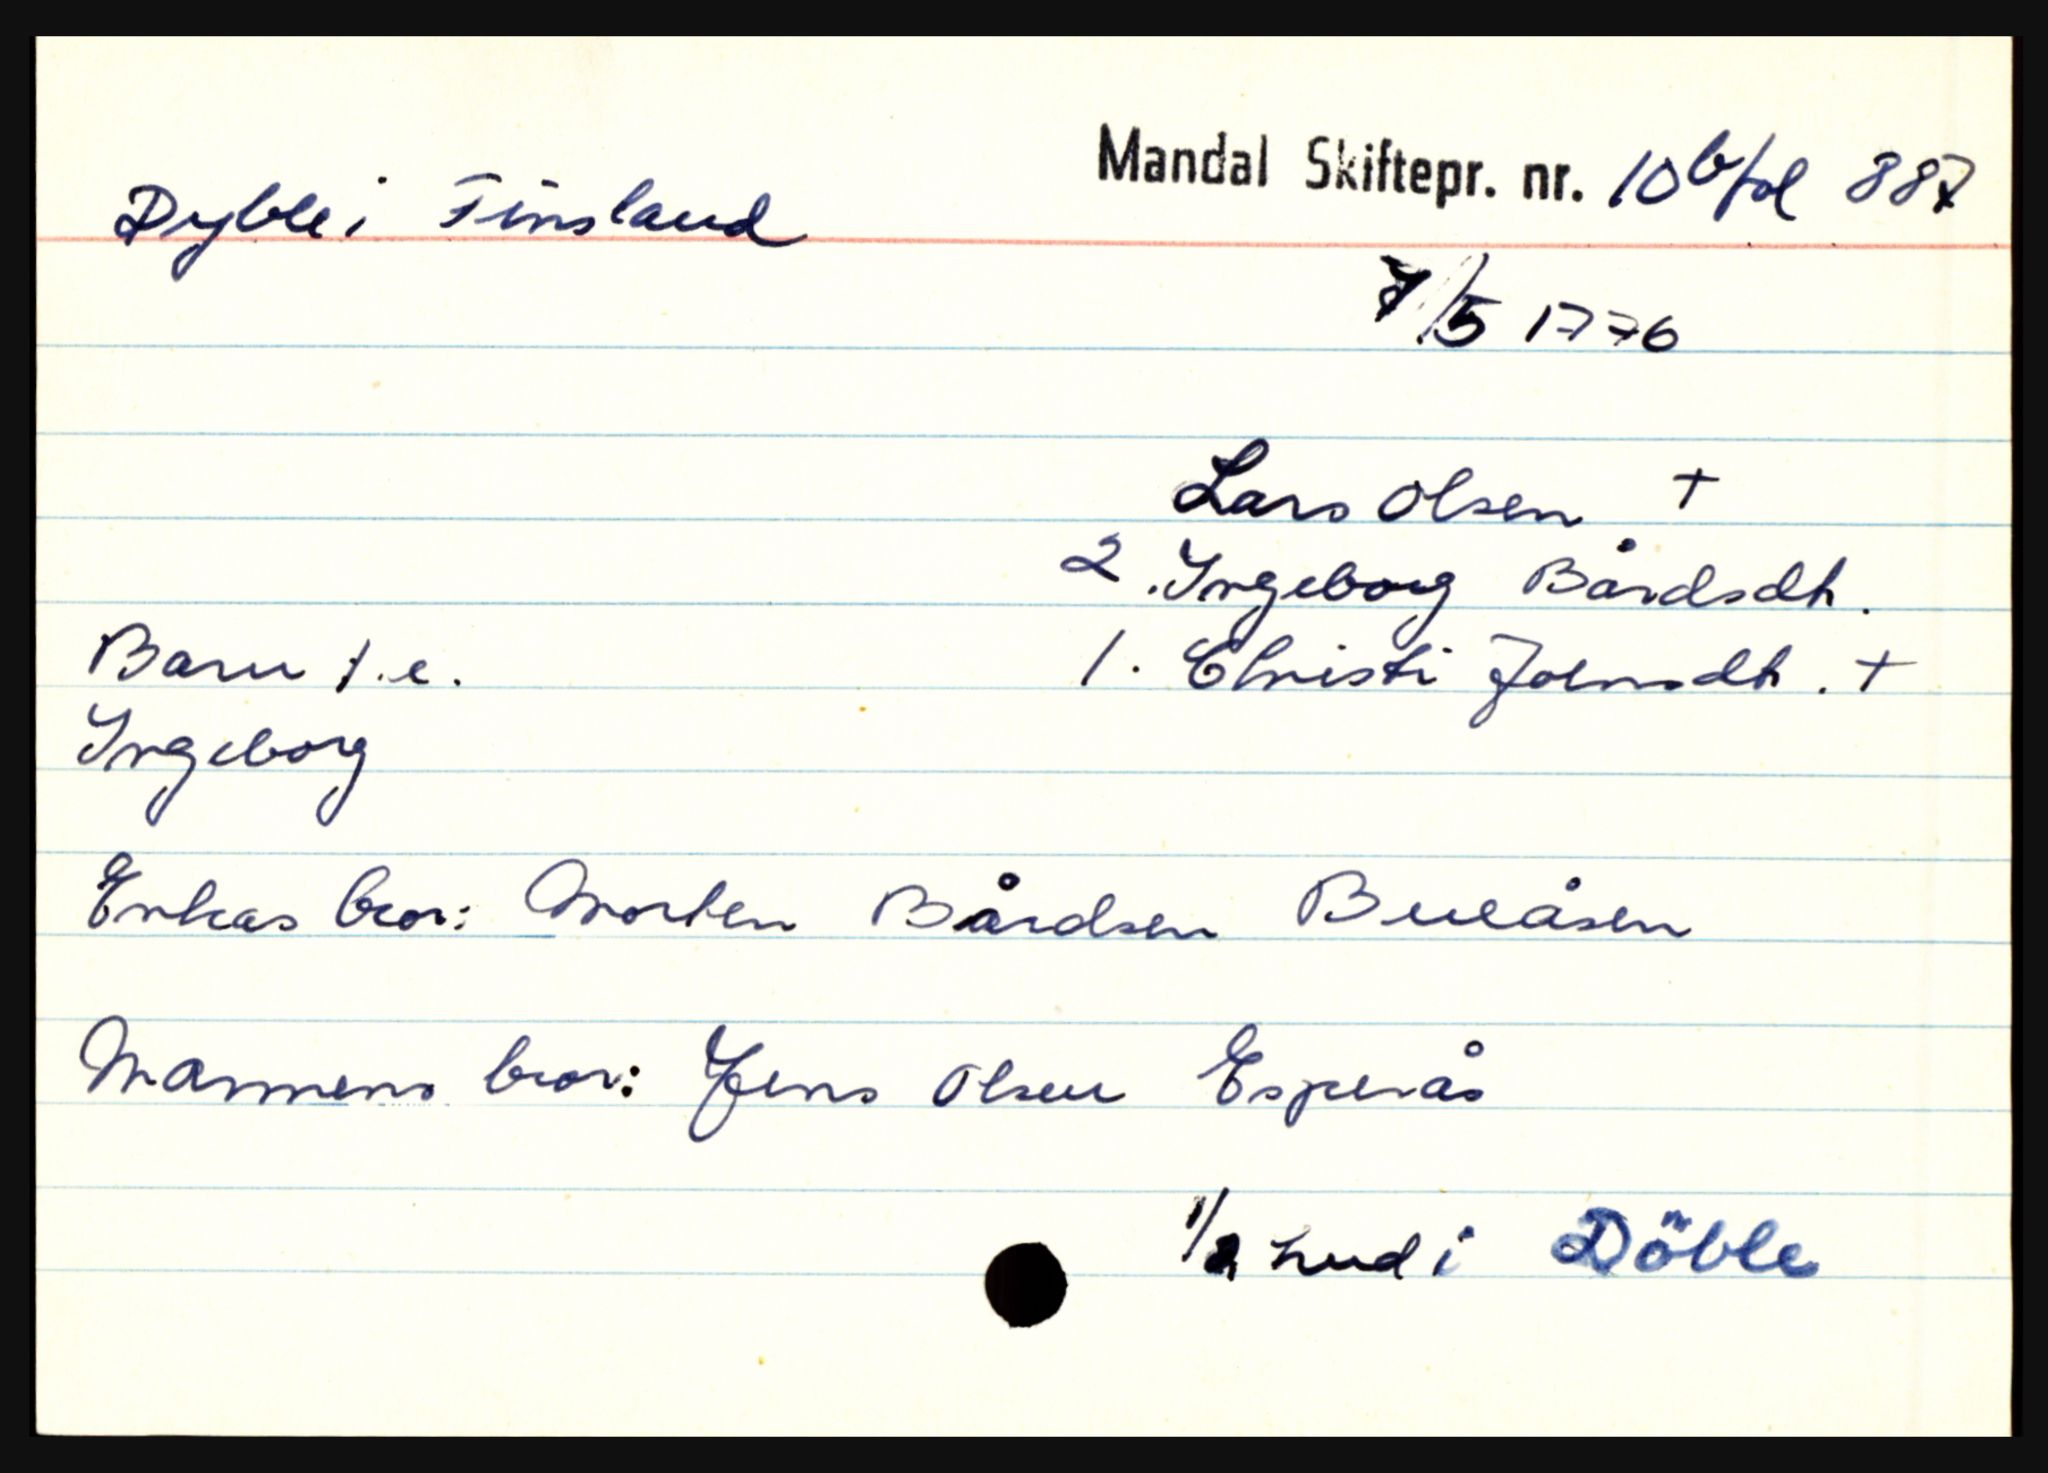 Mandal Skiftepr. nr. 10 b fol 887
Dyble i Finsland
7/5 1776
Lars Olsen +
2. Ingeborg Bårdsdt.
Barn f.e. 1. Christi Johnsdt. +
Ingeborg
Enkas bror: Morten Bårdsen Bueåsen
Mannens bror: Jens Olsen Esperås
1/2 hud i Döble